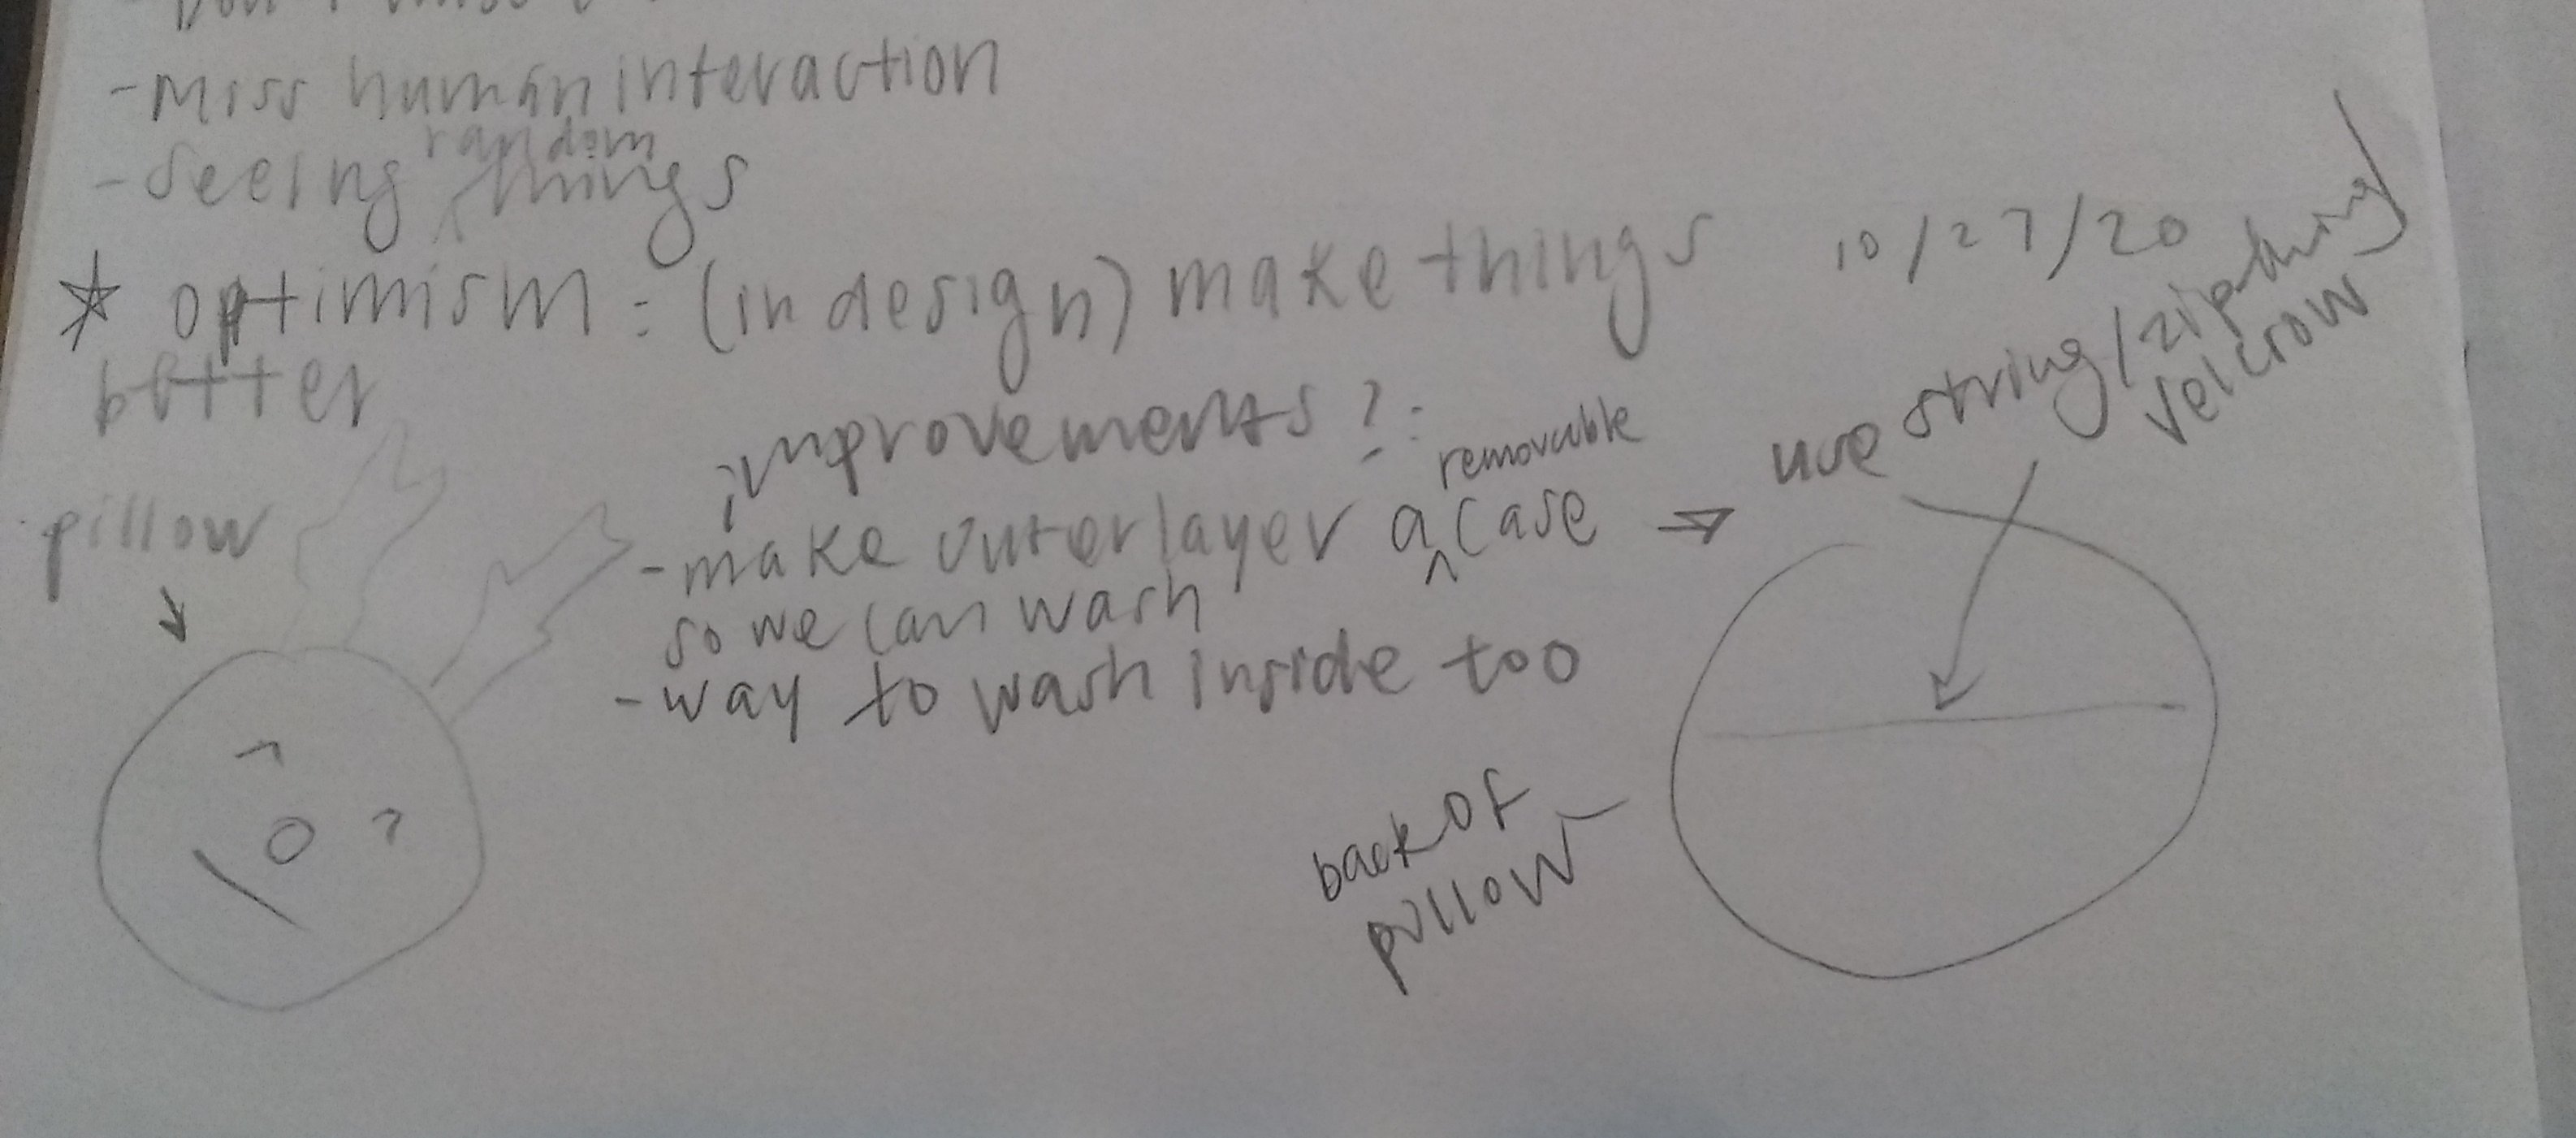 - Miss human interaction
- Seeing random things
☆ optimism : (in design) make things
better
10/27/20
pillow
improvements?:
- make outerlayer a removable case → use string/zip thing/
velcrow
so we can wash
- way to wash inside too
back of
pillow